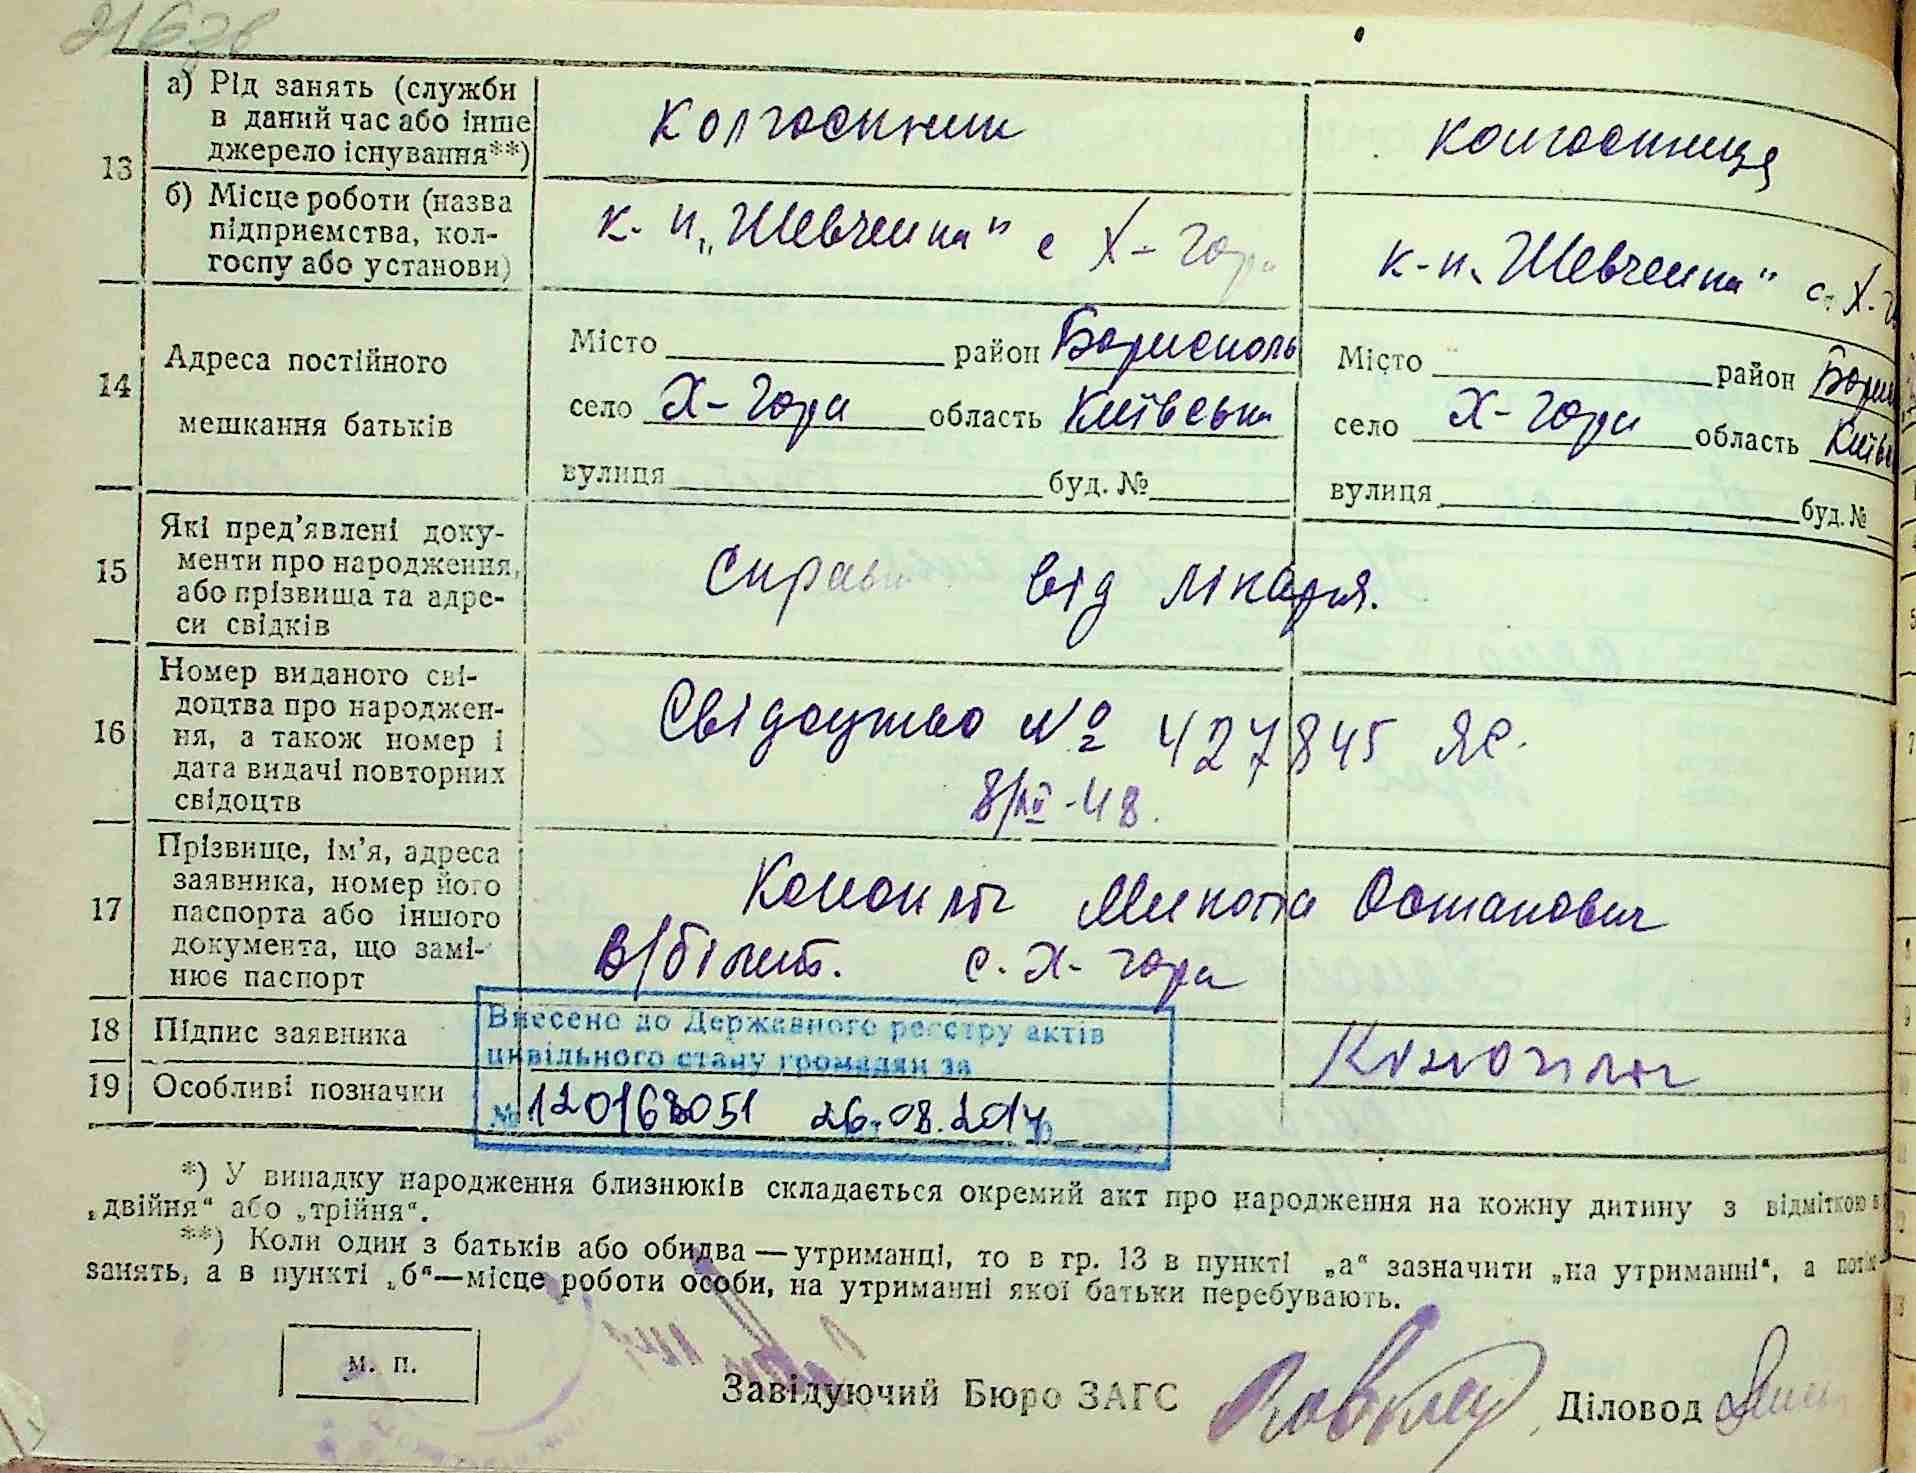 2167в
13
а) Рід занять (служби
в даний час або інше
джерело існування**)
Колгоспник
колгоспниця
б) Місце роботи (назва
підприємства, кол-
госпу або установи)
к-п „Шевченка" с Х-Гори
к-п „Шевченка" с. Х-Г
14
Адреса постійного
мешкання батьків
Місто район Бориспіль
село Х-Гори область Київська
вулиця буд. №
Місто район Бори
село Х-Гори область Київ
вулиця буд. №
15
Які пред’явлені доку-
менти про народження,
або прізвища та адре-
си свідків
Справ від лікаря.
16
Номер виданого сві-
доцтва про народжен-
ня, а також номер і
дата видачі повторних
свідоцтв
Свідоцтво № 427845 ЯС.
8/XII-48.
17
Прізвище, ім’я, адреса
заявника, номер його
паспорта або іншого
документа, що замі-
нює паспорт
Микола Остапович
В/білет. с. Х-Гори
18 Підпис заявника
19 Особливі позначки
Внесено до Державного реєстру актів
цивільного стану громадян за
№ 120168051 26.08.2017р
*) У випадку народження близнюків складається окремий акт про народження на кожну дитину з відміткою в
„двійня“ або „трійня“.
**) Коли один з батьків або обидва — утриманці, то в гр. 13 в пункті „а“ зазначити „на утриманні“, а потім
занять, а в пункті „б“—місце роботи особи, на утриманні якої батьки перебувають.
м. п.
Завідуючий Бюро ЗАГС
Діловод